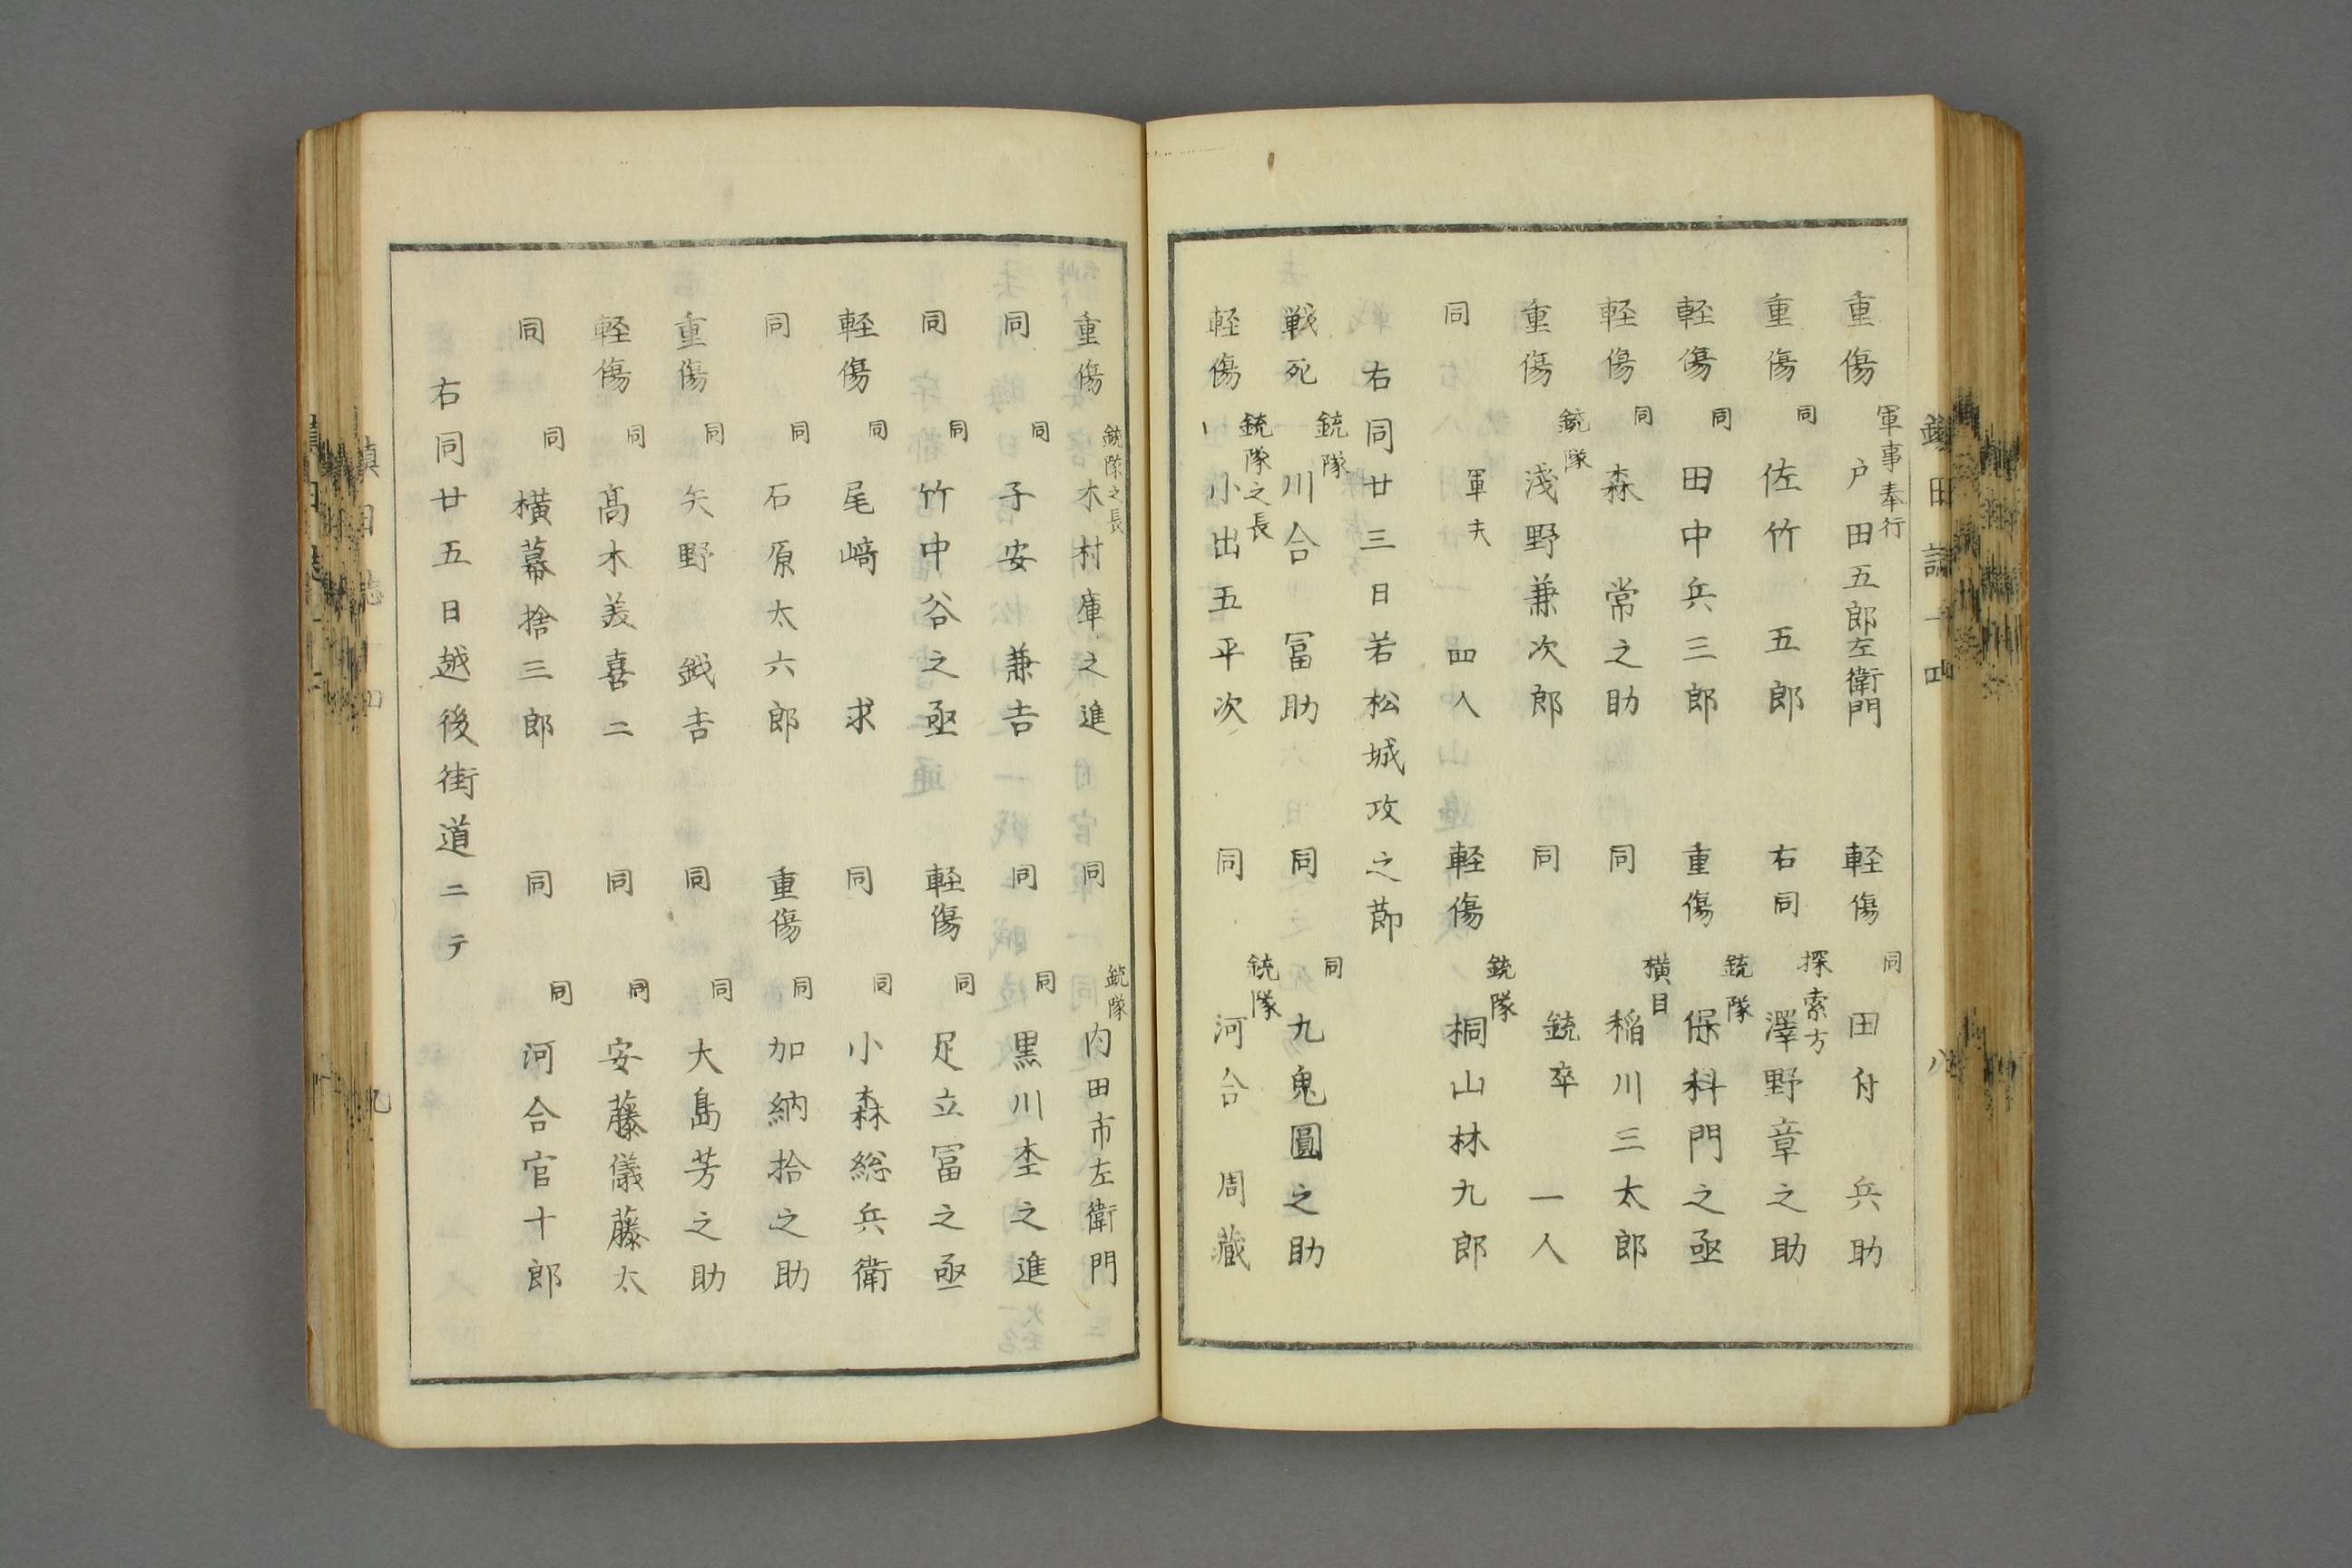 重傷 軍事奉行 戸田五郎左衛門 軽傷 同 田付 兵助
重傷 同 佐竹 五郎 右同 探索方 澤野章之助
軽傷 同 田中兵三郎 重傷 銃隊 保科門之亟
軽傷 同 森 常之助 同 横目 稲川三太郎
重傷 銃隊 淺野兼次郎 同 銃卒 一人
同 軍夫 四人 軽傷 銃隊 桐山林九郎
右同廿三日若松城攻之節
戦死 銃隊 川合 冨助 同 同 九鬼圓之助
軽傷 銃隊之長 小出五平次 同 銃隊 河合 周藏
重傷 銃隊之長 木村庫之進 同 銃隊 内田市左衛門
同 同 子安 兼吉 同 同 黒川杢之進
同 同 竹中谷之亟 軽傷 同 足立冨之亟
軽傷 同 尾﨑 求 同 同 小森総兵衛
同 同 石原太六郎 重傷 同 加納拾之助
重傷 同 矢野 鉞吉 同 同 大島芳之助
軽傷 同 髙木美喜二 同 同 安藤儀藤太
同 同 横幕捨三郎 同 同 河合官十郎
右同廿五日越後街道ニテ